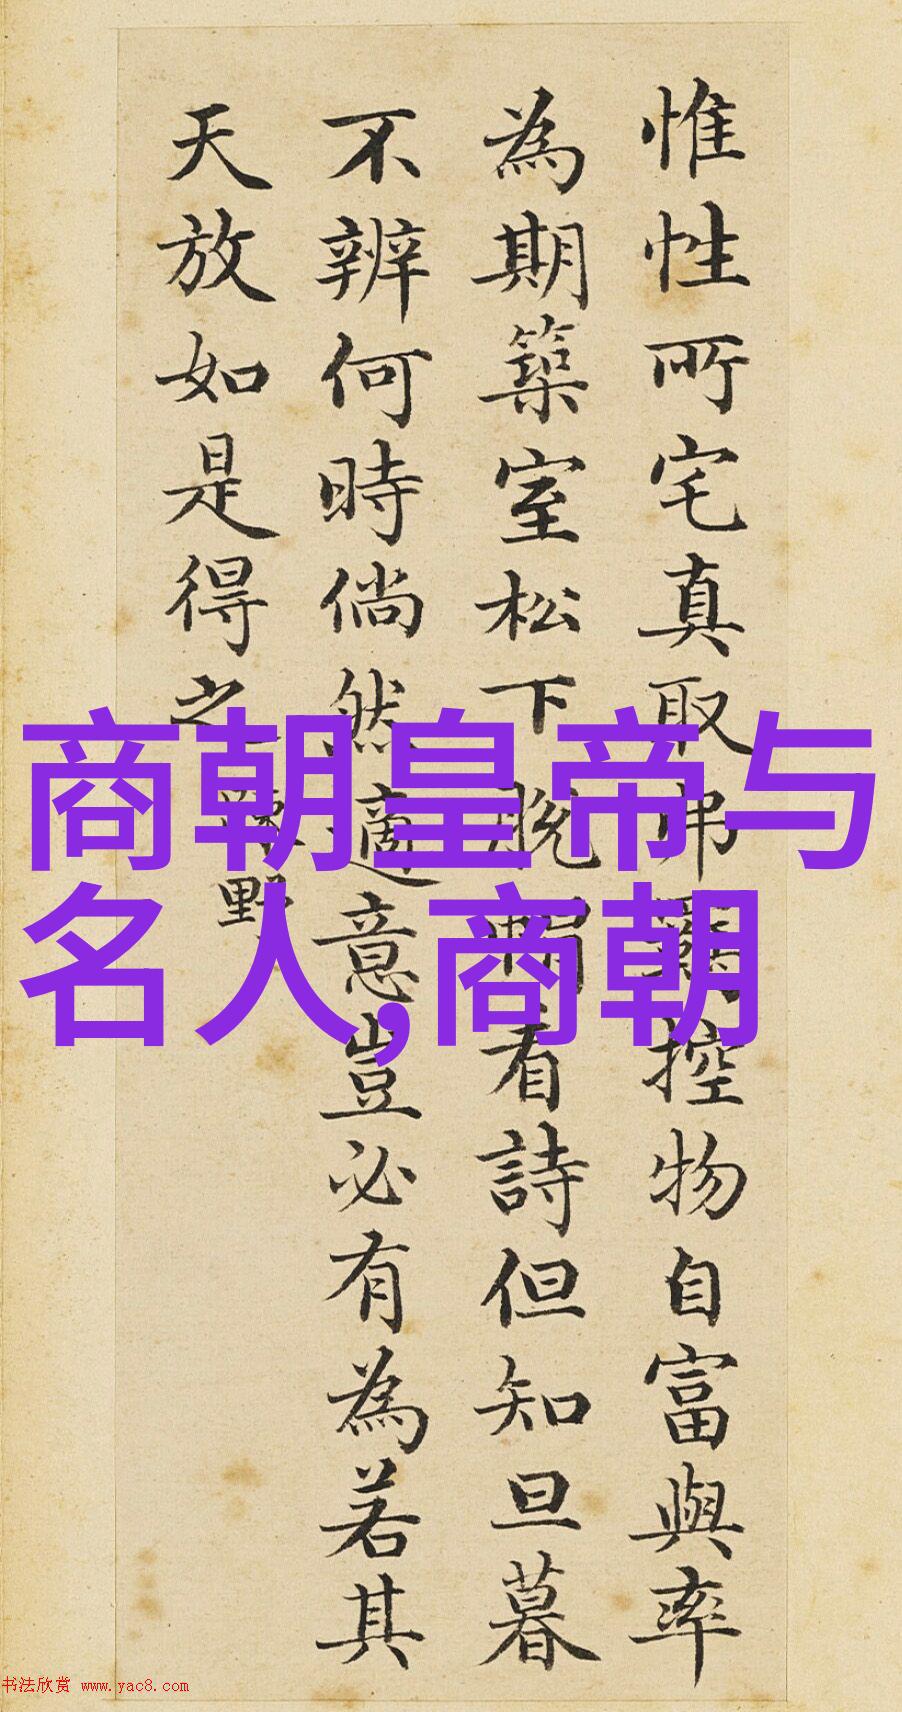 惟性所宅真取弗羈控物自富與率
為期築室松下脫帽看詩但知旦暮
不辨何時倘然適意豈必有為若其
天放如是得之 野
商朝皇帝与
名人,商朝
书法欣赏 www.yac8.com